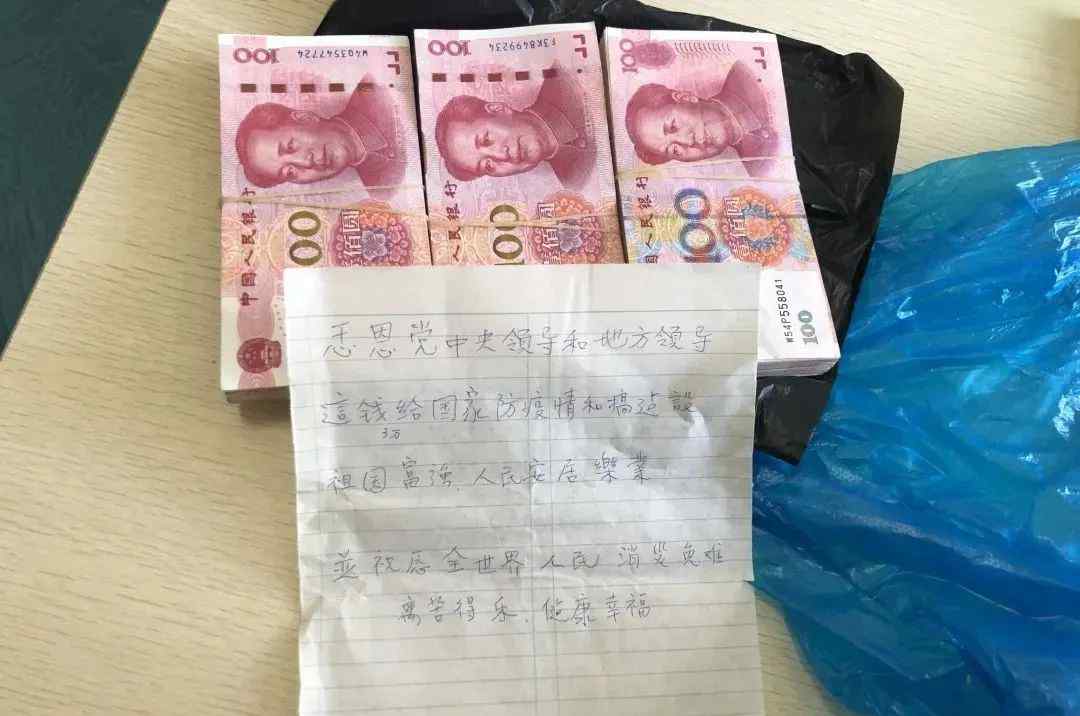 100 W4Q3547724
100 F3K8499234
100
中国人民银行
00
壹佰圆
中国人民银行
100
壹佰圆
中国人民银行
100
壹佰圆
W54P558041
100
恩党中央领导和地方领导
這钱给国家防疫情和搞建設
3万
祖国富强、人民安居樂業
並祝愿全世界人民 消災免难
离苦得乐、健康幸福